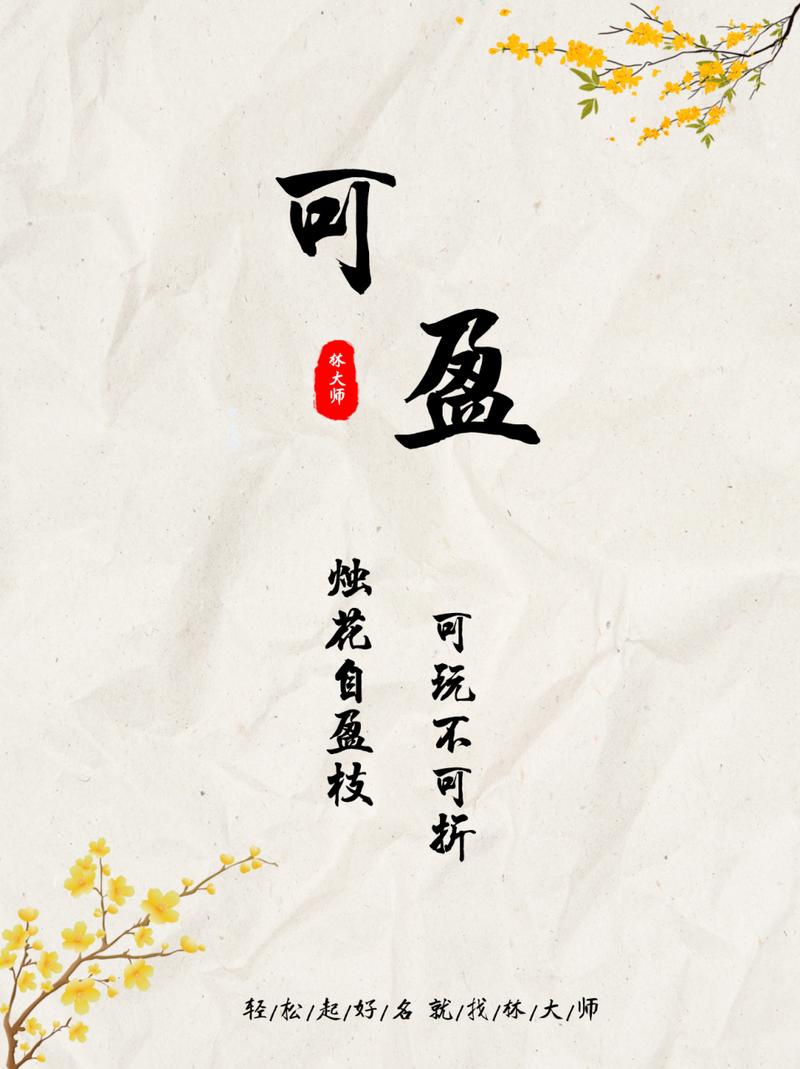 可盈
林大师
可玩不可折
烛花自盈枝
轻/松/起/好/名 就/找/林/大/师